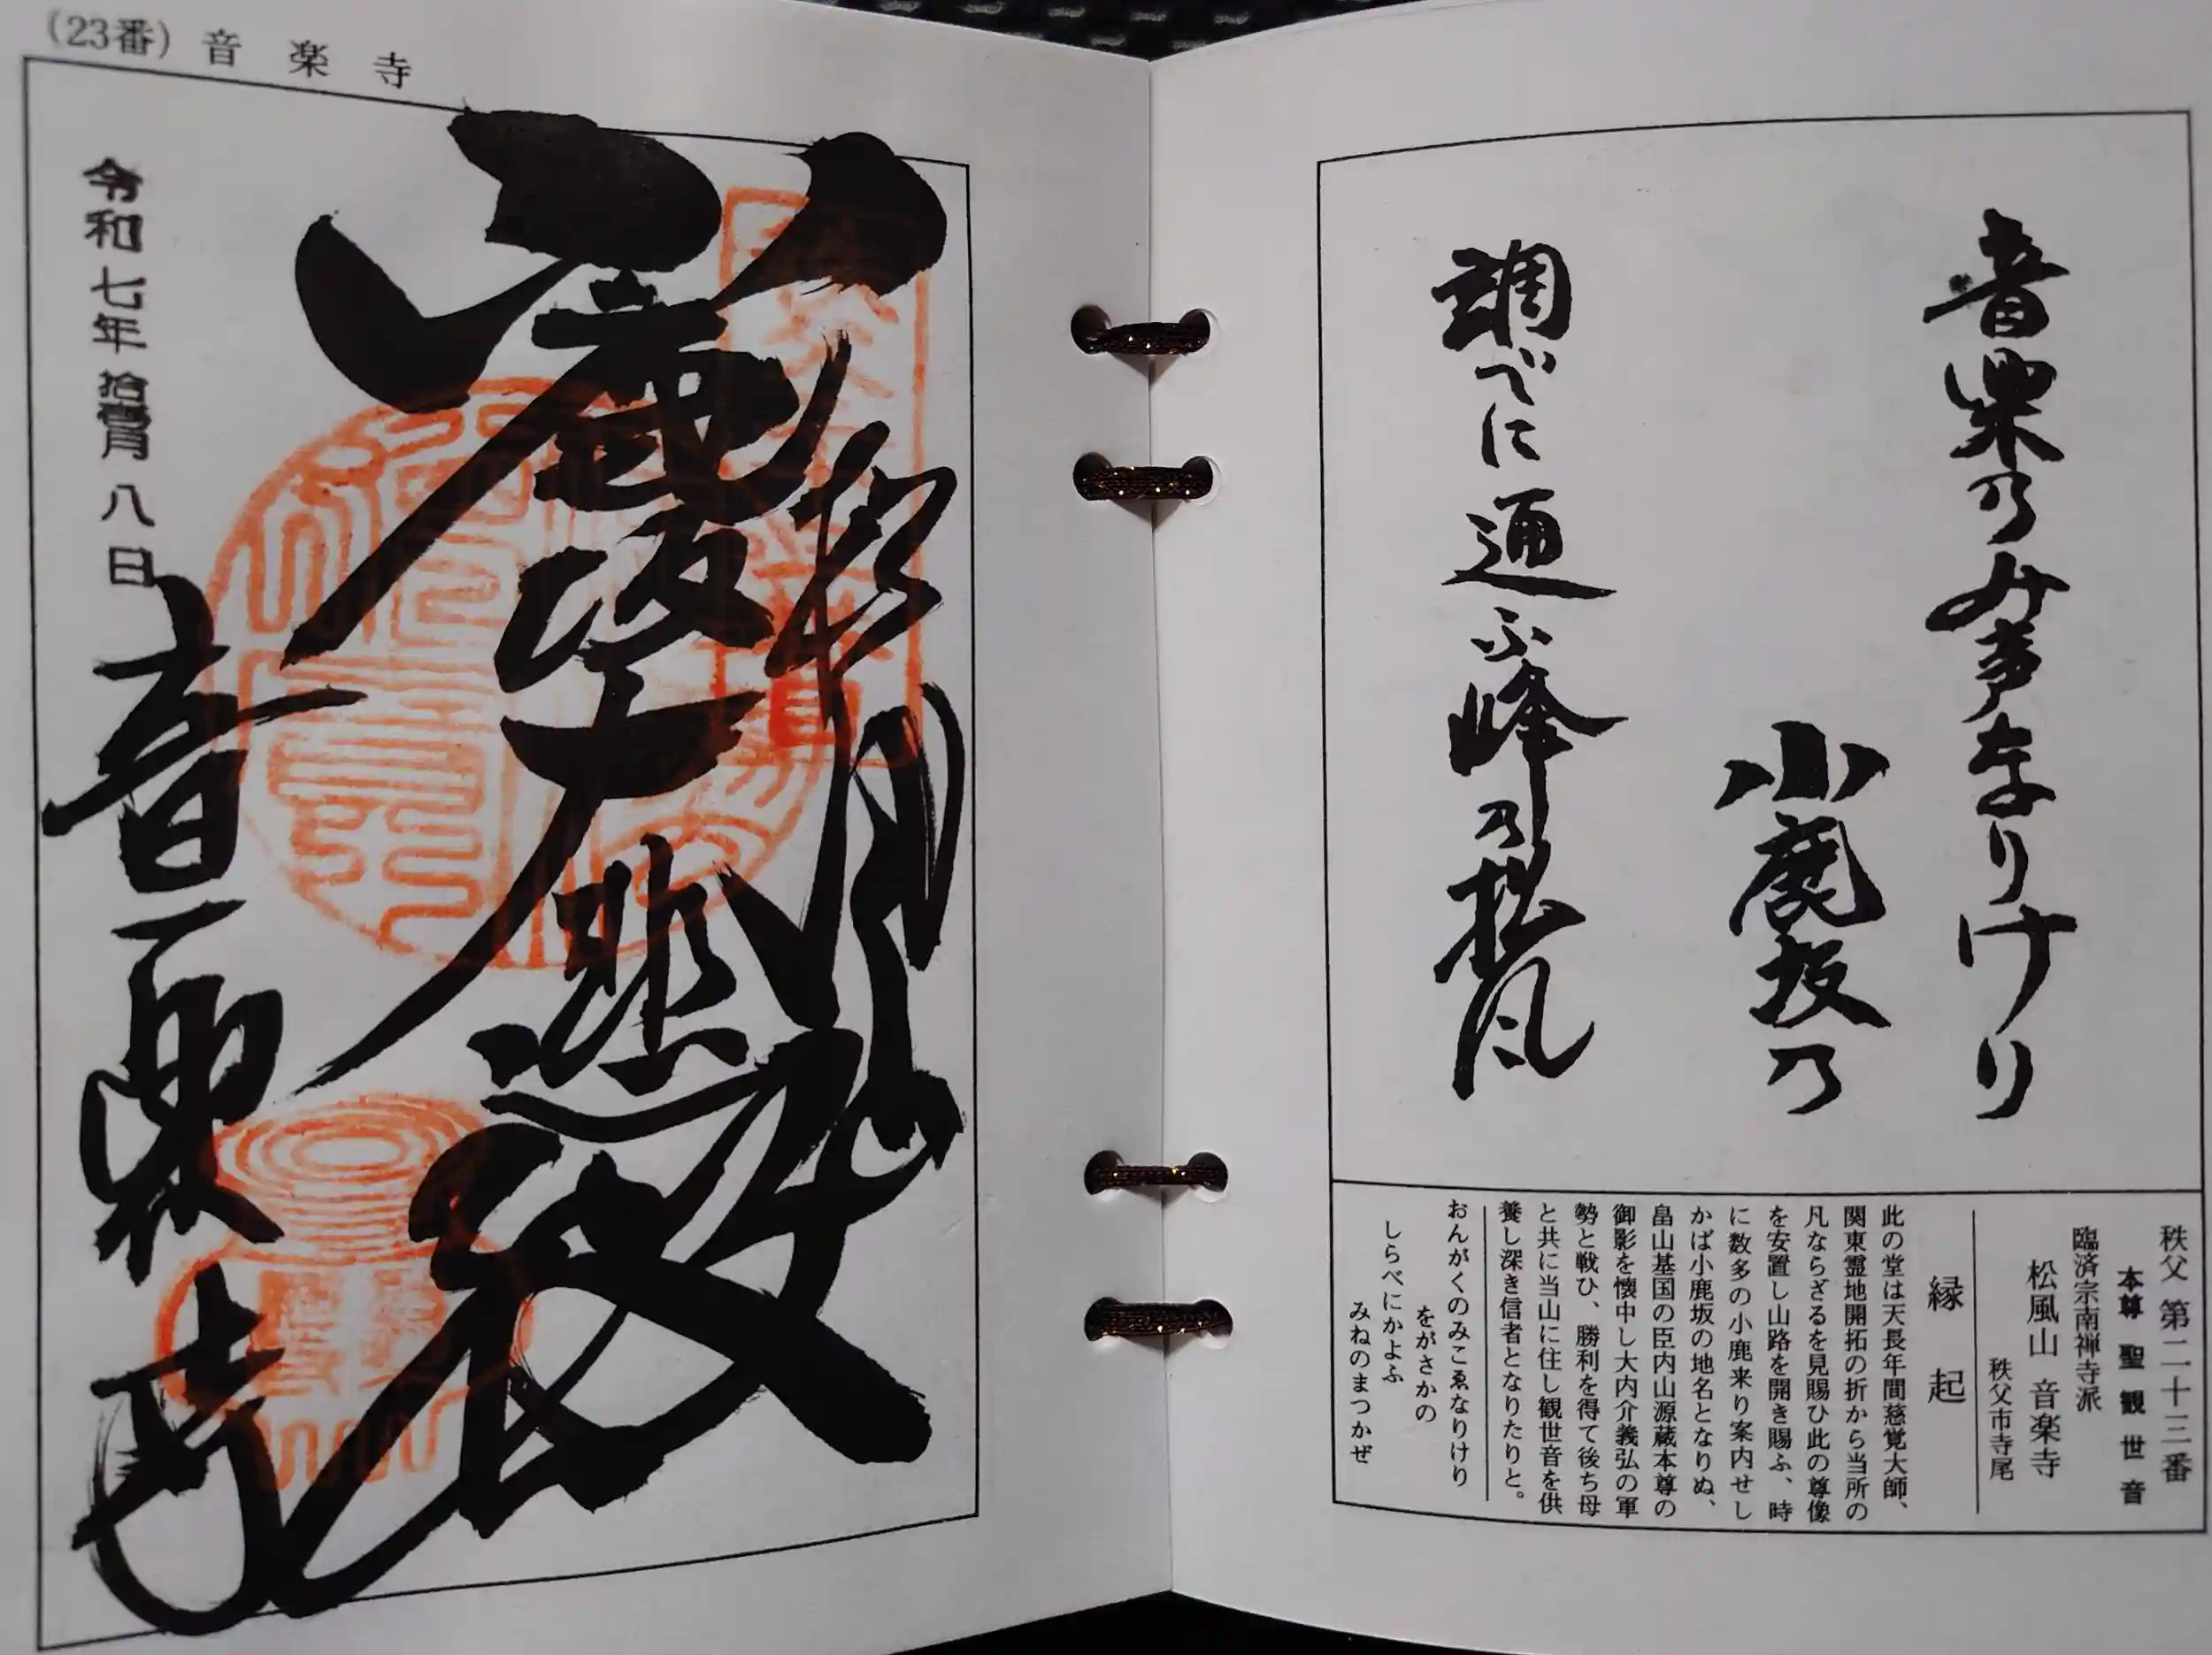 (23番) 音楽寺
令和七年拾壹月八日
小鹿坂
大悲殿
音楽寺
音楽乃み声なりけり
小鹿坂乃
調べに通ふ峰乃松風
秩父 第二十三番
本尊 聖観世音
臨済宗南禅寺派
松風山 音楽寺
秩父市寺尾
縁起
此の堂は天長年間慈覚大師、
関東霊地開拓の折から当所の
凡ならざるを見賜ひ此の尊像
を安置し山路を開き賜ふ、時
に数多の小鹿来り案内せし
かば小鹿坂の地名となりぬ、
畠山基国の臣内山源蔵本尊の
御影を懐中し大内介義弘の軍
勢と戦ひ、勝利を得て後ち母
と共に当山に住し観世音を供
養し深き信者となりたりと。
おんがくのみこゑなりけり
をがさかの
しらべにかよふ
みねのまつかぜ